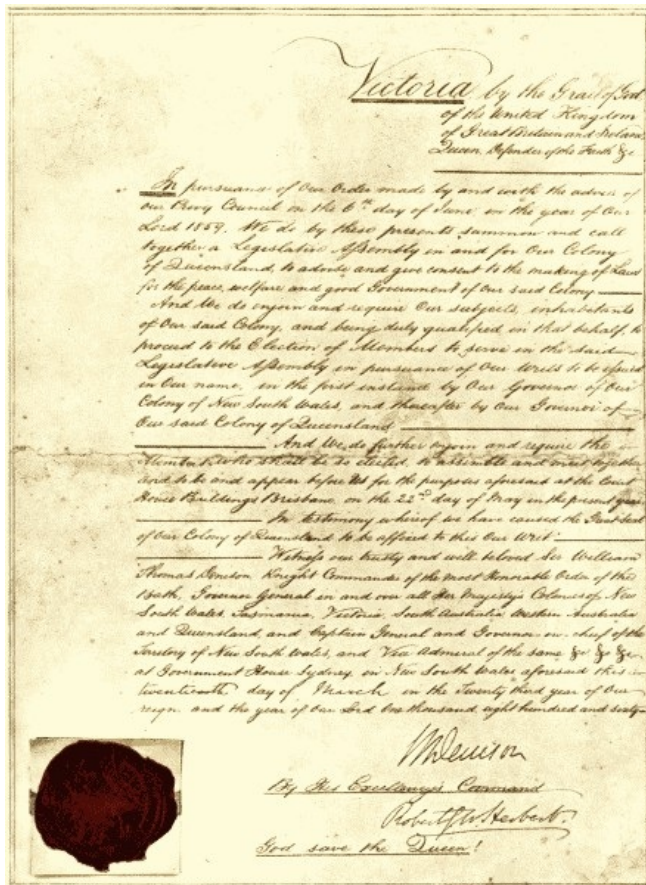 Victoria by the Grace of God
of the United Kingdom
of Great Britain and Ireland
Queen, Defender of the Faith &c
In pursuance of Our Order made by and with the advice of
our Privy Council on the 6th day of June in the year of Our
Lord 1859, We do by these presents summon and call
together a Legislative Assembly in and for Our Colony
of Queensland, to advise and give consent to the making of Laws
for the peace, welfare and good Government of Our said Colony
And We do enjoin and require Our subjects, inhabitants
of Our said Colony, and being duly qualified in that behalf, to
proceed to the Election of Members to serve in the said
Legislative Assembly in pursuance of Our Writs to be issued
in Our name, in the first instance by Our Governor of Our
Colony of New South Wales, and thereafter by Our Governor of
Our said Colony of Queensland
And We do further enjoin and require the
Members who shall be so elected, to assemble and meet together
and to be and appear before Us for the purposes aforesaid at the Court
House Buildings Brisbane on the 22nd day of May in the present year
In testimony whereof we have caused the Great Seal
of Our Colony of Queensland to be affixed to this Our Writ:
Witness our trusty and well beloved Sir William
Thomas Denison Knight Commander of the most Honorable Order of the
Bath, Governor General in and over all Her Majesty's Colonies of New
South Wales, Tasmania, Victoria, South Australia Western Australia
and Queensland, and Captain General and Governor-in-chief of the
Territory of New South Wales, and Vice Admiral of the same &c &c &c,
at Government House Sydney, in New South Wales aforesaid this
twentieth day of March in the Twenty third year of Our
reign and the year of Our Lord One thousand, eight hundred and sixty
W Denison
By His Excellency's Command
Robert G W Herbert.
God save the Queen!